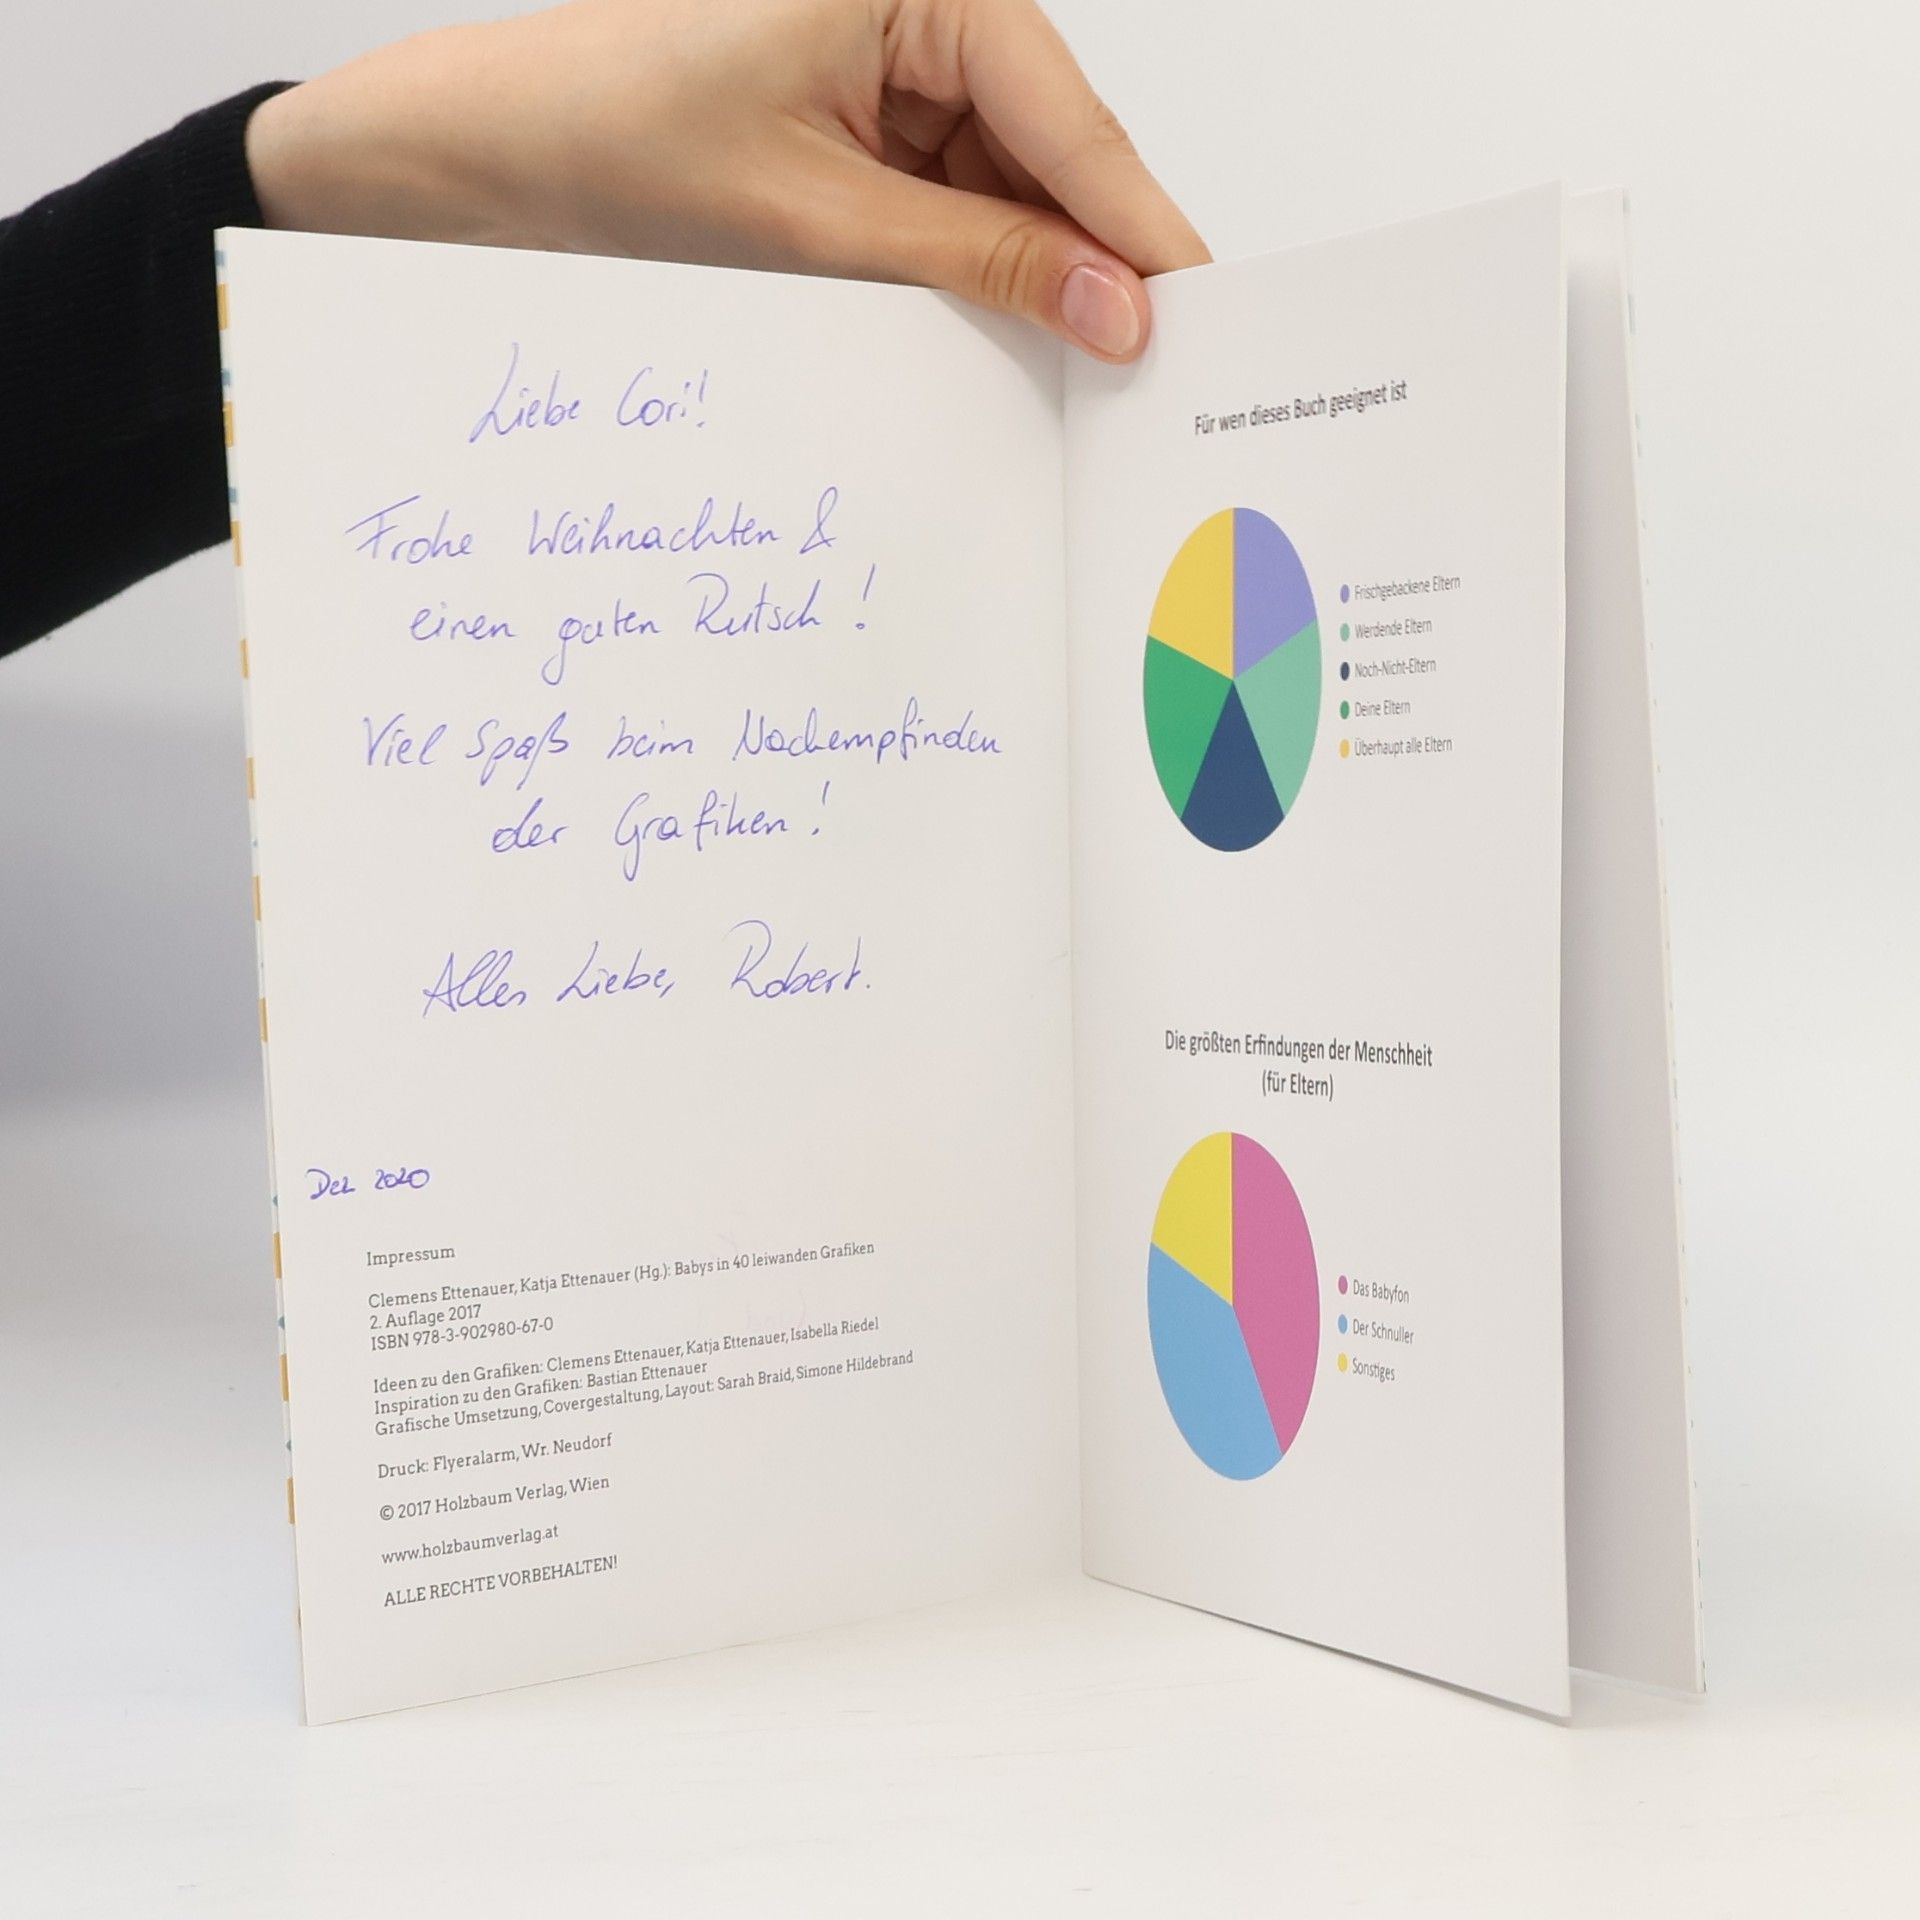 Liebe Cori!
Frohe Weihnachten &
einen guten Rutsch!
Viel Spaß beim Nachempfinden
der Grafiken!
Alles Liebe, Robert.
Dez 2020
Impressum
Clemens Ettenauer, Katja Ettenauer (Hg.): Babys in 40 leiwanden Grafiken
2. Auflage 2017
ISBN 978-3-902980-67-0
Ideen zu den Grafiken: Clemens Ettenauer, Katja Ettenauer, Isabella Riedel
Inspiration zu den Grafiken: Bastian Ettenauer
Grafische Umsetzung, Covergestaltung, Layout: Sarah Braid, Simone Hildebrand
Druck: Flyeralarm, Wr. Neudorf
© 2017 Holzbaum Verlag, Wien
www.holzbaumverlag.at
ALLE RECHTE VORBEHALTEN!
Für wen dieses Buch geeignet ist
Frischgebackene Eltern
Werdende Eltern
Noch-Nicht-Eltern
Deine Eltern
Überhaupt alle Eltern
Die größten Erfindungen der Menschheit
(für Eltern)
Das Babyfon
Der Schnuller
Sonstiges